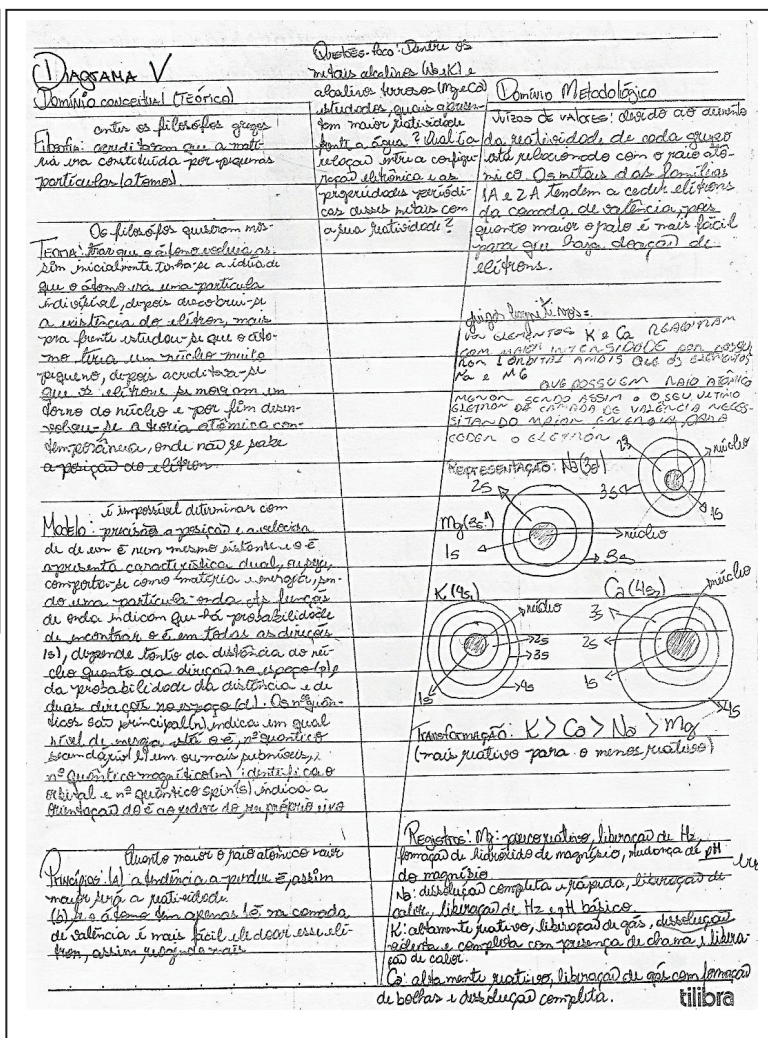 Diagrama V
Domínio conceitual (Teórico)
antes os filosófos gregos
Filosofia: acreditavam que a maté-
ria era constituída por pequenas
partículas (atomos).
Os filosófos quiseram mos-
Teoria: trar que o átomo
sim inicialmente tinha-se a idéia de
que o átomo era uma partícula
indivisível, depois descobriu-se
a existência do elétron, mais
pra frente estudou-se que o áto-
mo teria um núcleo muito
pequeno, depois acreditava-se
que os elétrons se moviam em
torno do núcleo e por fim desen-
volveu-se a teoria atômica con-
temporânea, onde não se sabe
a posição do elétron
é impossível determinar com
Modelo: precisão a posição e a velocida
de de um ē num mesmo instante e o ē
apresenta característica dual, ou seja,
comporta-se como matéria e energia, sen-
do uma partícula-onda. As funções
de onda indicam que há probabilidade
de encontrar o ē em todas as direções
(s), depende tanto da distância do nú-
cleo quanto da direção no espaço (p) e
da probabilidade da distância e de
duas direções no espaço (d). Os nº quân-
ticos são principal (n), indica em qual
nível de energia está o ē, nº quântico
secundário (l) um ou mais subníveis,
nº quântico magnético (m) identifica o
orbital e nº quântico spin (s) indica a
orientação do ē ao redor do seu próprio eixo
Quanto maior o raio atomico maior
Princípios: (a) a tendência a perder ē, assim
maior será a reatividade.
(b) se o átomo tem apenas 1ē na camada
de valência é mais fácil ele doar esse elé-
tron, assim reagindo mais
Questões-foco: Dentre os
metais alcalinos (Na e K) e
alcalinos terrosos (Mg e Ca)
estudados, quais apresen-
tem maior reatividade
frente a água? Qual é a
relação entre a configu-
ração eletrônica e as
propriedades periódi-
cas desses metais com
a sua reatividade?
Domínio Metodológico
Juízos de valores: devido ao aumento
da reatividade de cada grupo
está relacionado com o raio atô-
mico. Os metais das famílias
1A e 2A tendem a ceder elétrons
da camada de valência, pois
quanto maior o raio é mais fácil
para que haja doação de
elétrons.
Juízos cognitivos:
Os elementos K e Ca reagiram
com maior intensidade por possuí
rem 1 orbital amais que os elementos
Na e Mg
que possuem raio atômico
menor sendo assim o seu ultimo
eletron da camada de valência neces-
sitando maior energia para
ceder o eletron
Representação: Na (3s¹)
2s
núcleo
3s
1s
Mg (3s²)
2s
1s
núcleo
3s
K (4s₁)
núcleo
2s
3s
1s
4s
Ca (4s₂)
núcleo
3s
2s
1s
4s
Transformação: K > Ca > Na > Mg
(mais reativo para o menos reativo)
Registros: Mg: pouco reativo, liberação de H₂,
formação de hidróxido de magnésio, mudança de pH
do magnésio
Na: dissolução completa e rápida, liberação de
calor, liberação de H₂ e pH básico.
K: altamente reativo, liberação de gás, dissolução
violenta e completa com presença de chama e libera-
ção de calor.
Ca: altamente reativo, liberação de gás com formação
de bolhas e dissolução completa.
tilibra